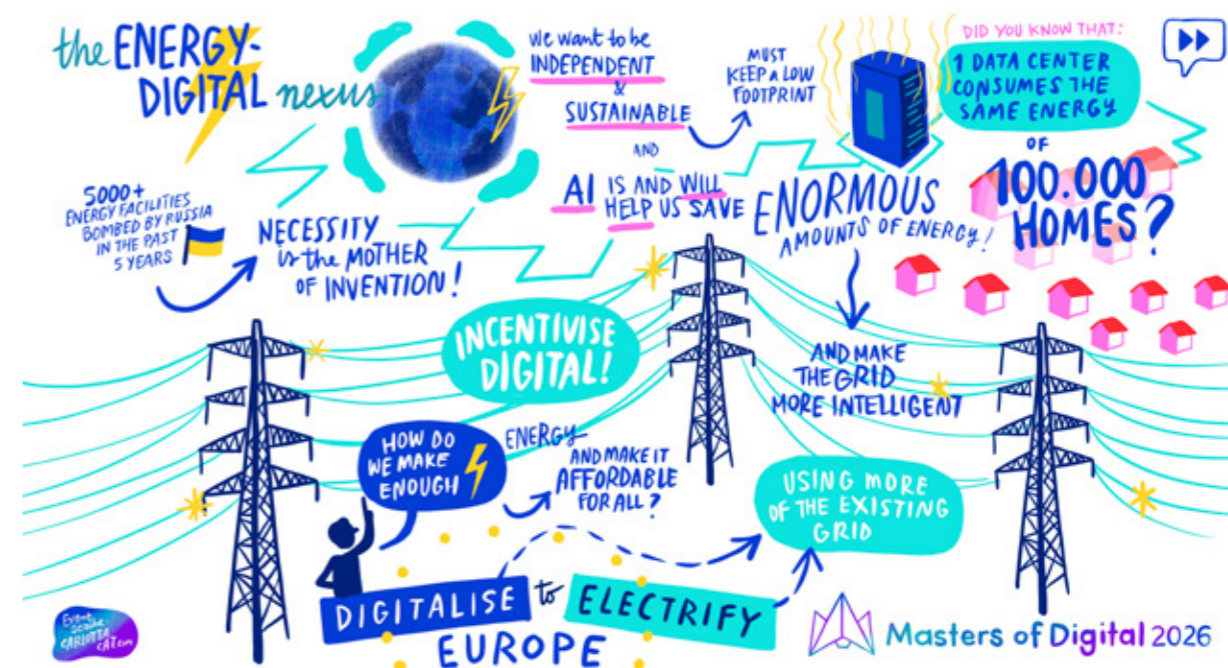 the ENERGY-
DIGITAL nexus
5000+
ENERGY FACILITIES
BOMBED BY RUSSIA
IN THE PAST
5 YEARS
NECESSITY
is the MOTHER
OF INVENTION!
We want to be
INDEPENDENT
&
SUSTAINABLE
MUST
KEEP A LOW
FOOTPRINT
AND
AI IS AND WILL
HELP US SAVE
ENORMOUS
AMOUNTS OF ENERGY!
DID YOU KNOW THAT:
1 DATA CENTER
CONSUMES THE
SAME ENERGY
OF
100.000
HOMES?
AND MAKE
THE GRID
MORE INTELLIGENT
INCENTIVISE
DIGITAL!
HOW DO
WE MAKE
ENOUGH
ENERGY
AND MAKE IT
AFFORDABLE
FOR ALL?
USING MORE
OF THE EXISTING
GRID
DIGITALISE to ELECTRIFY
EUROPE
CARLOTTA
CAT.com
Masters of Digital 2026